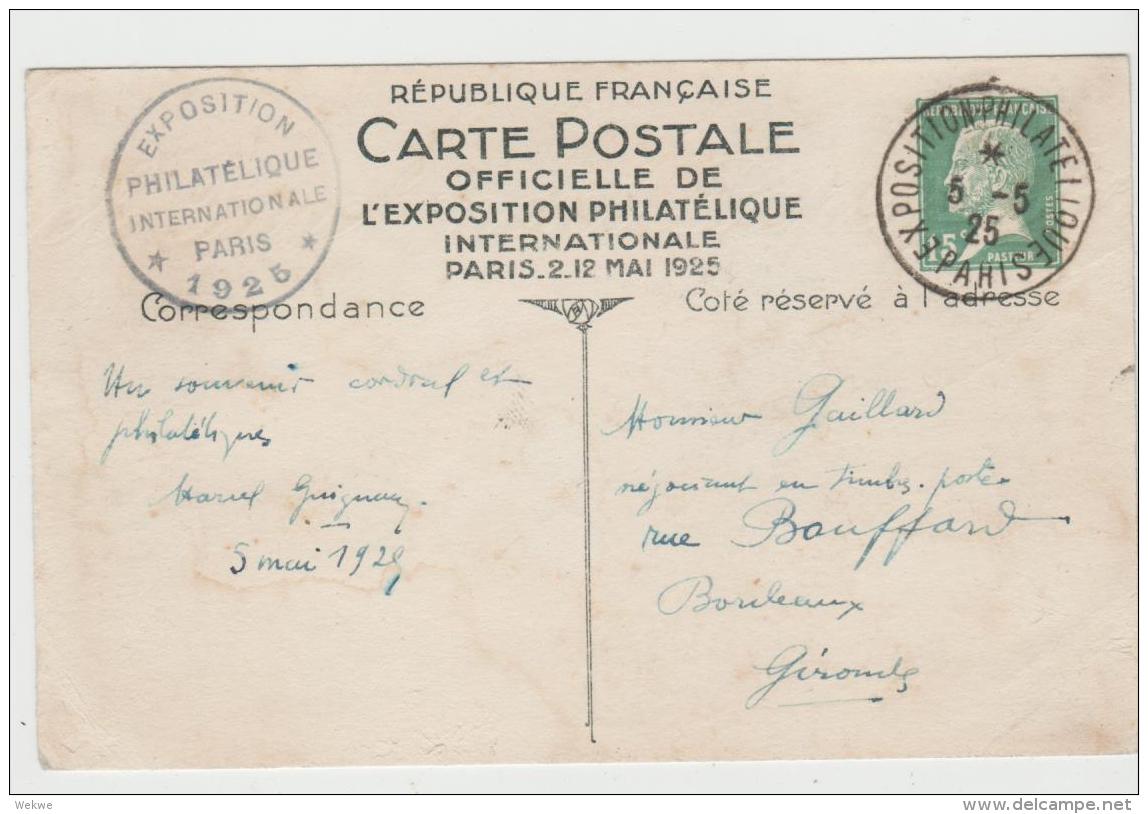 EXPOSITION
PHILATÉLIQUE
INTERNATIONALE
PARIS
1925
RÉPUBLIQUE FRANÇAISE
CARTE POSTALE
OFFICIELLE DE
L'EXPOSITION PHILATÉLIQUE
INTERNATIONALE
PARIS_2_12 MAI 1925
EXPOSITION PHILATELIQUE
PARIS
5 -5
25
15c
POSTES
PASTEUR
Correspondance
Coté réservé à l'adresse
Un souvenir cordial et
philatéliques
Marcel
5 mai 1925
Monsieur Gaillard
négociant en timbres-poste
rue Bouffard
Bordeaux
Gironde
Wekwe
www.delcampe.net